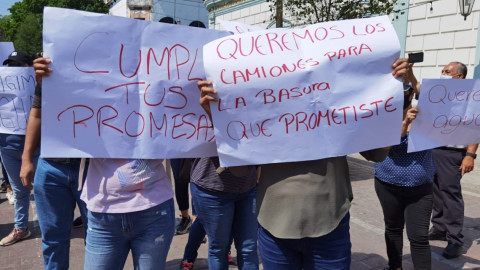 CUMPL
TUS
PROMESA
QUEREMOS LOS
CAMIONES PARA
LA BASURA
QUE PROMETISTE